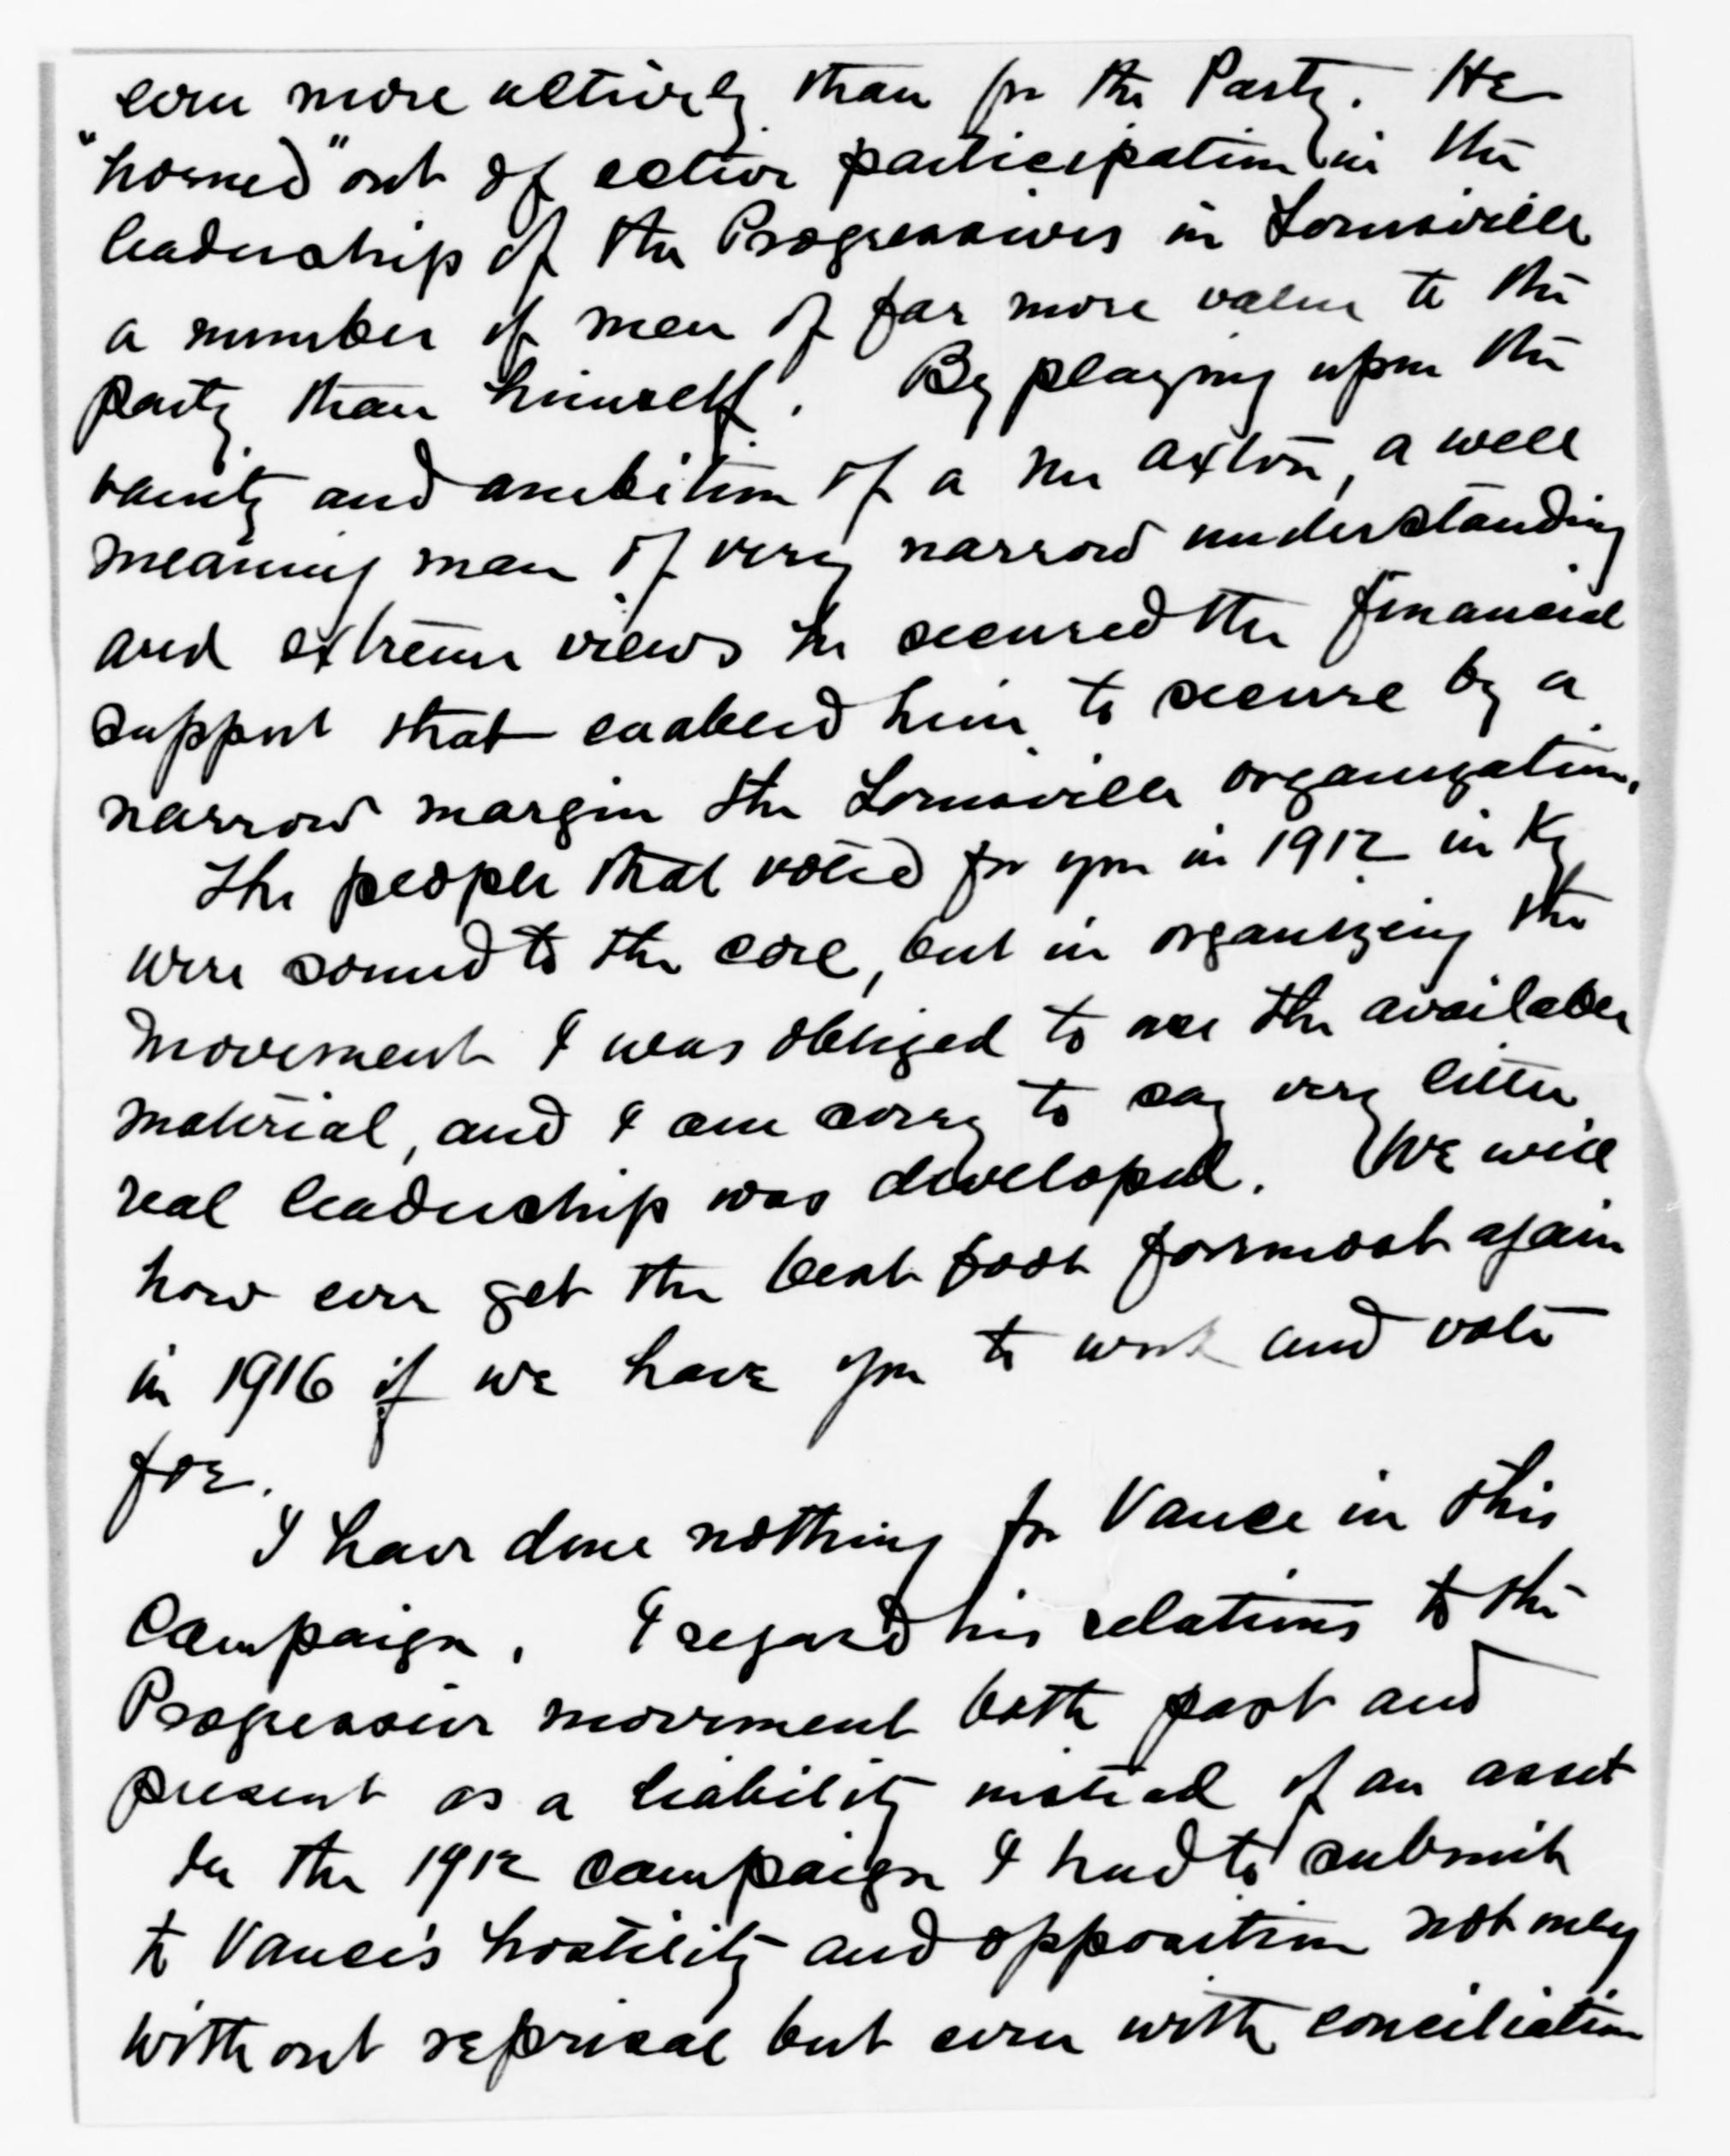 even more actively than for the Party. He
"horned" out of active participation in the
leadership of the Progressives in Louisville
a number of men of far more value to the
party than himself. By playing upon the
vanity and ambition of a Mr Axton, a well
meaning man of very narrow understanding
and extreme views he secured the financial
support that enabled him to secure by a
narrow margin the Louisville organization.
The people that voted for you in 1912 in Ky
were sound to the core, but in organizing the
movement I was obliged to use the available
material, and I am sorry to say very little
real leadership was developed. We will
how ever get the best foot formost again
in 1916 if we have you to work and vote
for.
I have done nothing for Vance in this
Campaign. I regard his relations to the
Progressive movement both past and
present as a liability instead of an asset
In the 1912 campaign I had to submit
to Vance's hostility and opposition not only
without reprisal but even with conciliation